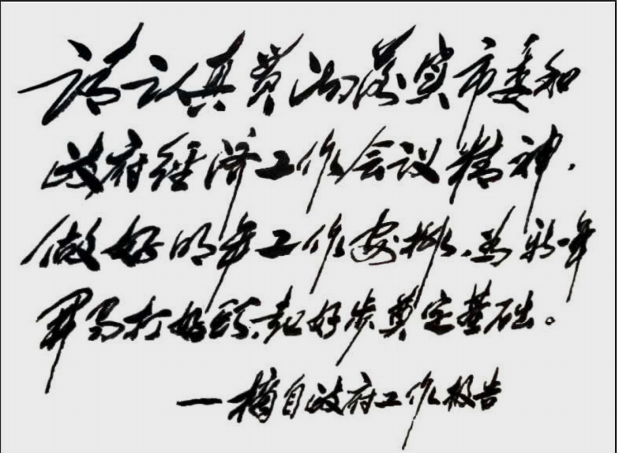 请认真贯彻落实市委和
政府经济工作会议精神.
做好明年工作安排.为新年
开局打好头.起好步奠定基础。
—摘自政府工作报告